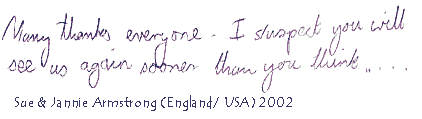 Many thanks everyone. I suspect you will
see us again sooner than you think.....
Sue & Jannie Armstrong (England/ USA) 2002